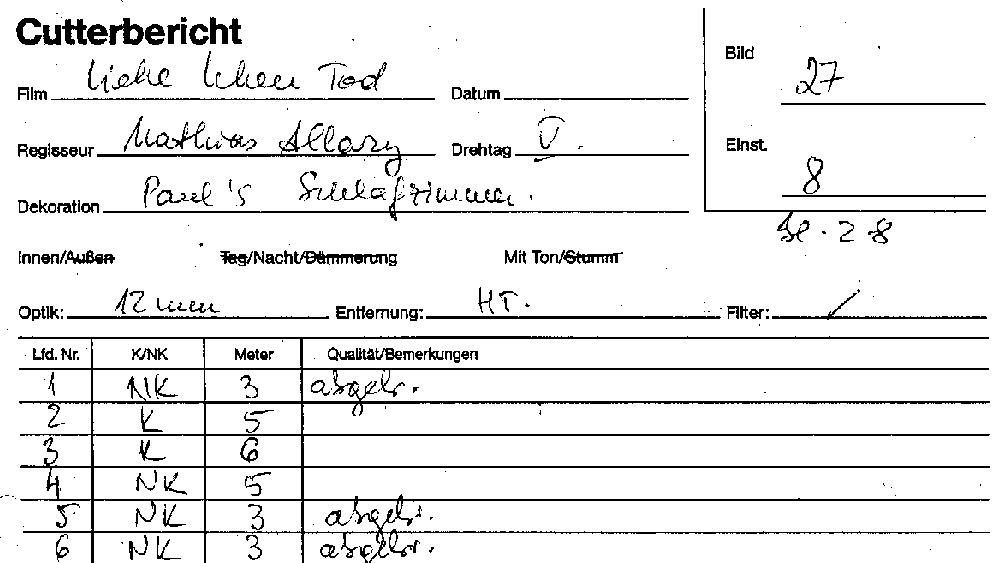 Cutterbericht
Film Liebe Leben Tod Datum Bild 27
Regisseur Mathias Allary Drehtag V. Einst. 8
Dekoration Paul's Schlafzimmer.
Bl. 2 8
Innen/Außen Tag/Nacht/Dämmerung Mit Ton/Stumm
Optik: 12 mm Entfernung: HT. Filter: /
Lfd. Nr. K/NK Meter Qualität/Bemerkungen
1 NK 3 abgebr.
2 K 5
3 K 6
4 NK 5
5 NK 3 abgebr.
6 NK 3 abgebr.